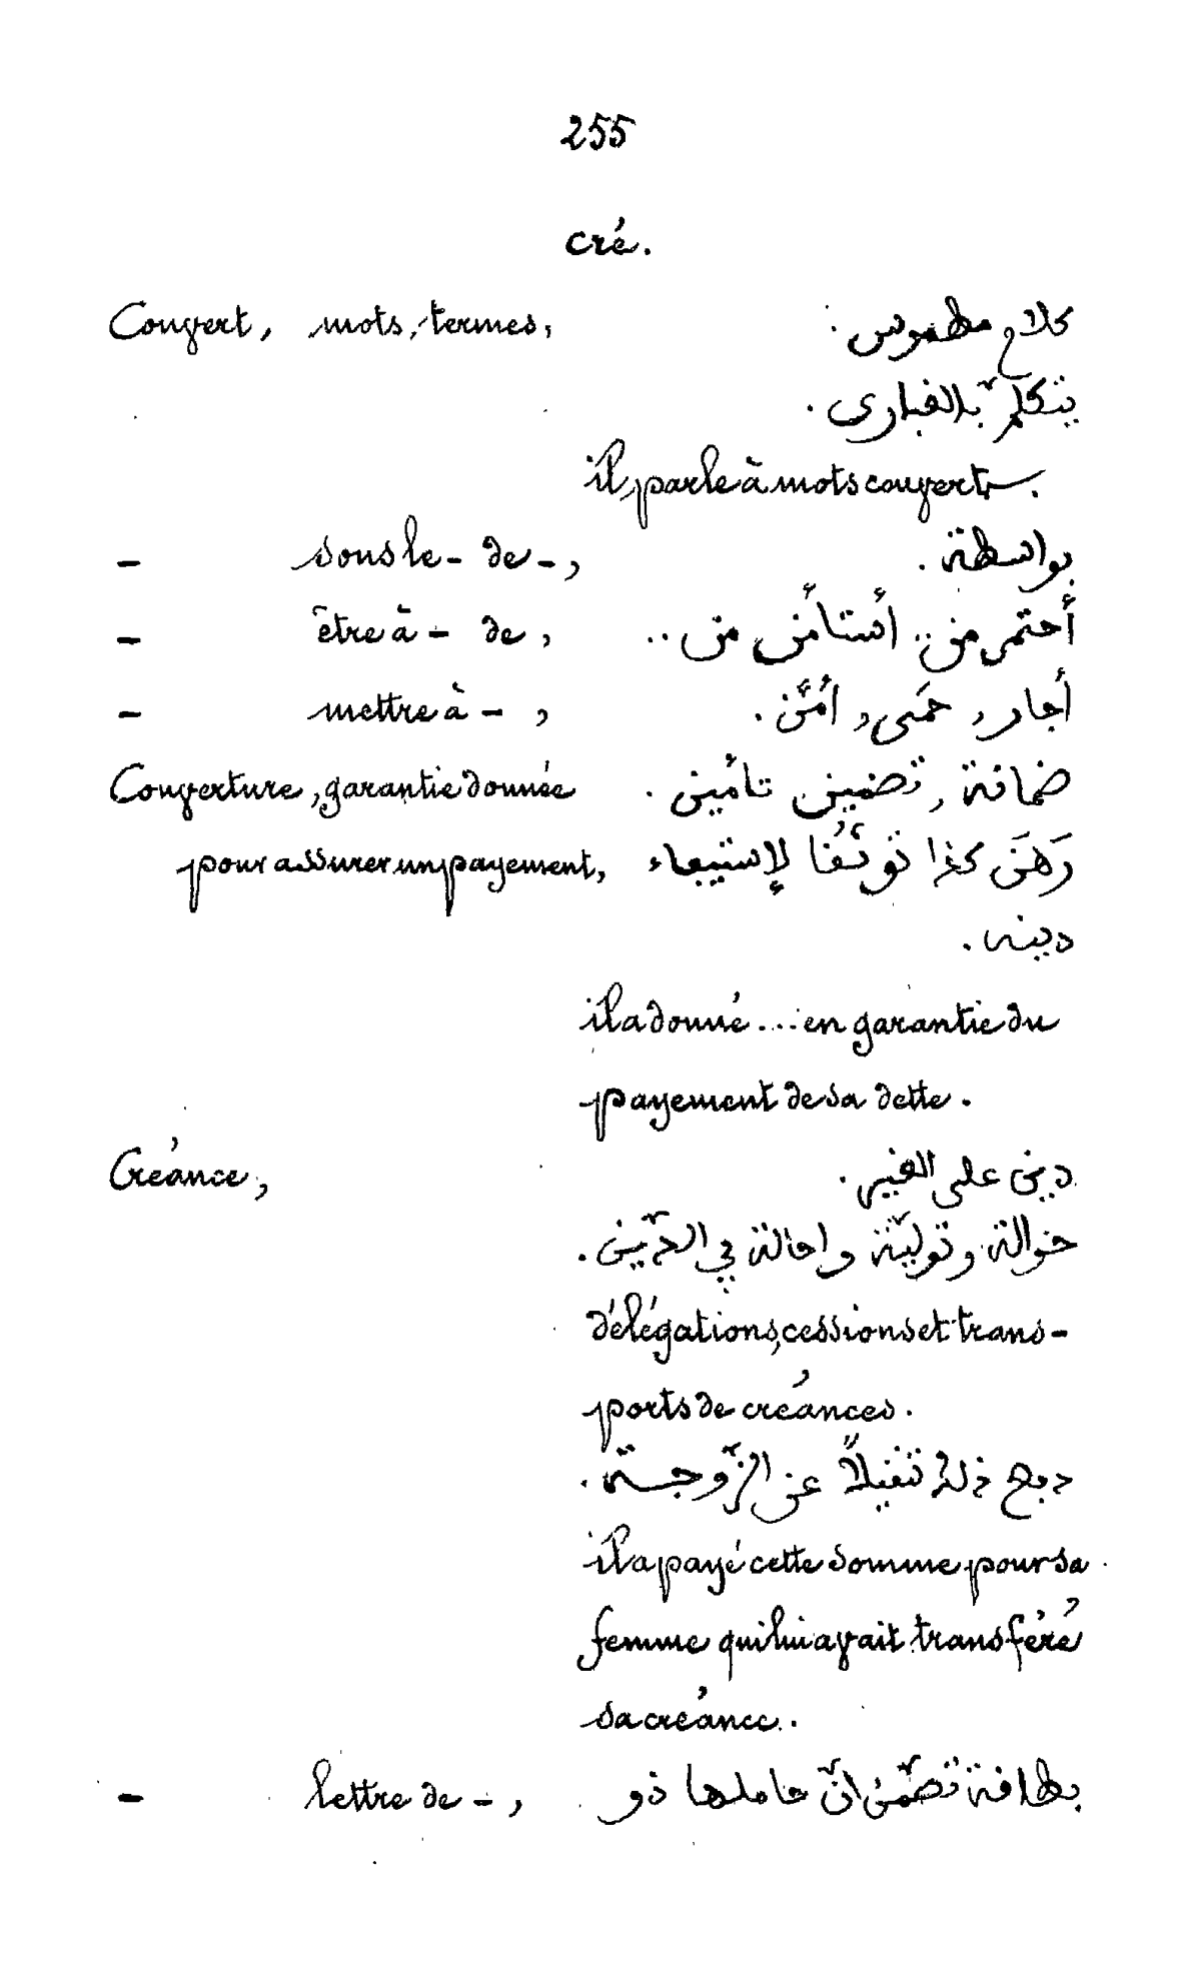 255
cré.
Couvert, mots, termes, كلام مطموس.
يتكلّم بالغبارى.
il parle à mots couverts.
— sous le - de -, بواسطة.
— être à - de, أحتمى من.. أستأمن من..
— mettre à -, أجار, حمَى, أمَّن.
Couverture, garantie donnée ضمانة, تضمين تأمين.
pour assurer un payement, رَهَنَ كذا توثّقا لإستيفاء
دينه.
il a donné ... en garantie du
payement de sa dette.
Créance, دين على الغير.
حوالة وتوليّة واحالة في الدّين.
délégations, cessions et trans-
ports de créances.
دفع ذلك تنفيلاً عن الزّوجة.
il a payé cette somme pour sa
femme qui lui avait transféré
sa créance.
— lettre de -, بطاقة تضمّن انّ حاملها ذو